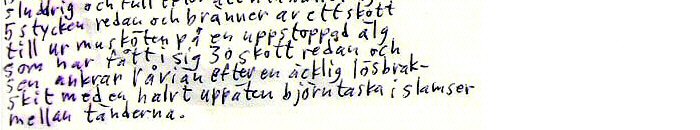 sluddrig och full
5 stycken redan och bränner av ett skott
till ur musköten på en uppstoppad älg
som har fått i sig 30 skott redan och
sen ankrar Rårian efter en äcklig lösbrak-
skit med en halvt uppäten björntaska i slamsor
mellan tänderna.